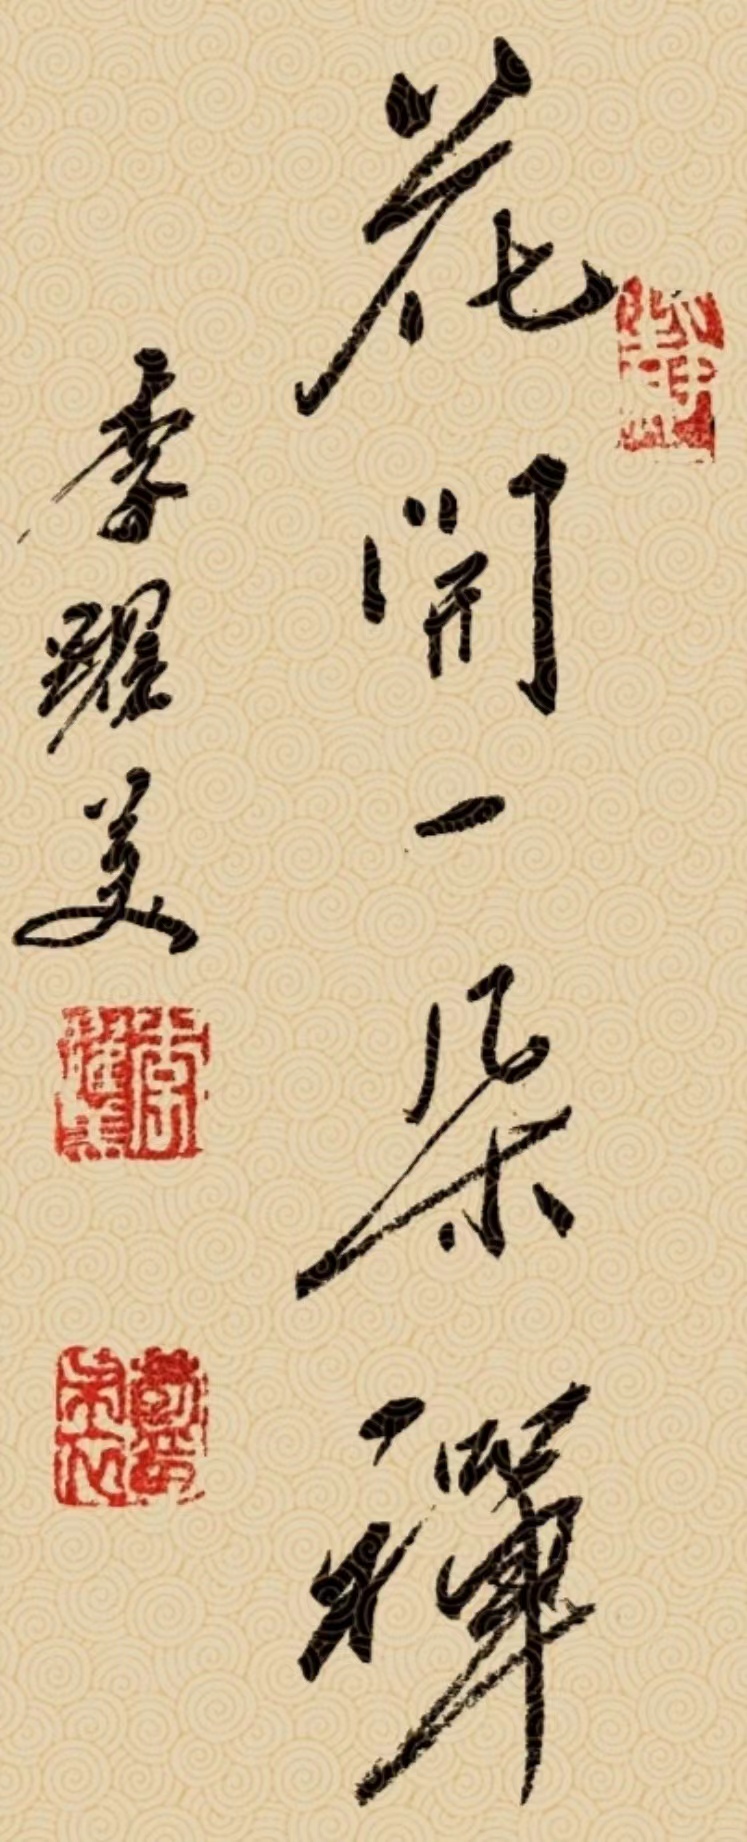 花開一朵禪
李躍美